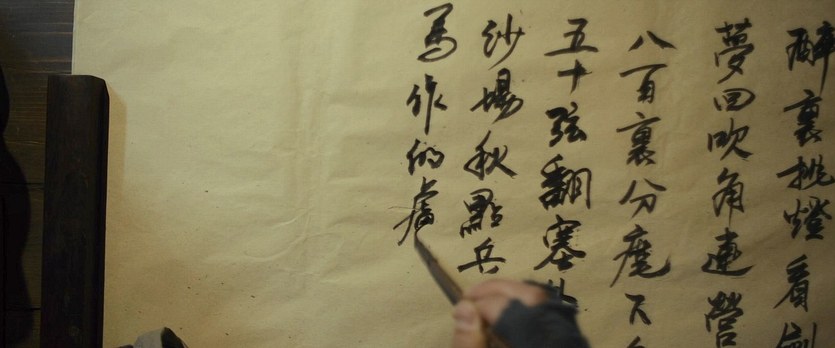 醉裏挑燈看劍
夢回吹角連營
八百裏分麾下
五十弦翻塞
沙場秋點兵
馬作的盧